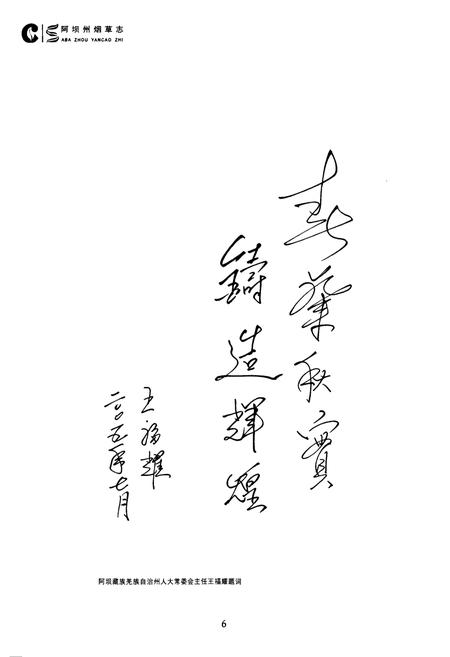 阿坝州烟草志
ABA ZHOU YANCAO ZHI
春華秋實
鑄造輝煌
王福耀
二〇〇五年七月
阿坝藏族羌族自治州人大常委会主任王福耀题词
6